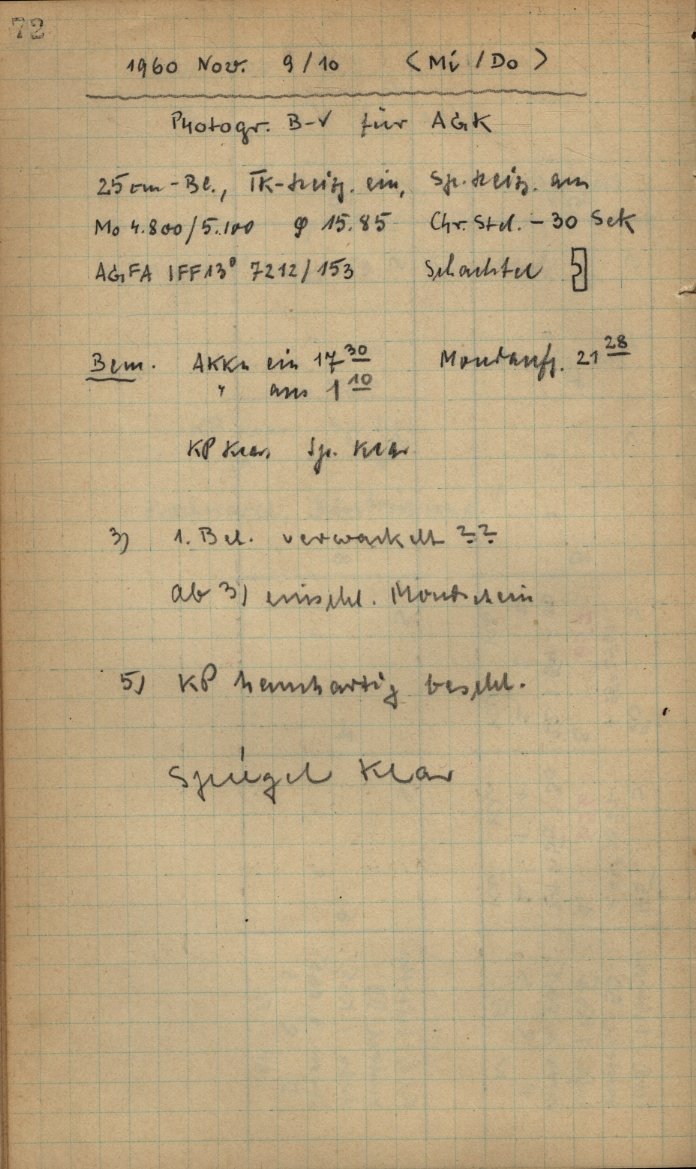 72
1960 Nov. 9/10 (Mi/Do)
Photogr. B-V für AGK
25cm-Bl., TK-Heizg. ein, Sp. Heizg. aus
Mo 4.800/5.100 φ 15.85 Chr. Std. - 30 Sek
AGFA IFF13° 7212/153 Schachtel
Bem. Akku ein 17 30 Mondaufg. 21 28
" aus 1 10
KP klar, Sp. klar
3) 1. Bel. verwackelt ??
ab 3) einschl. Mondschein
5) KP hauchartig beschl.
Spiegel klar